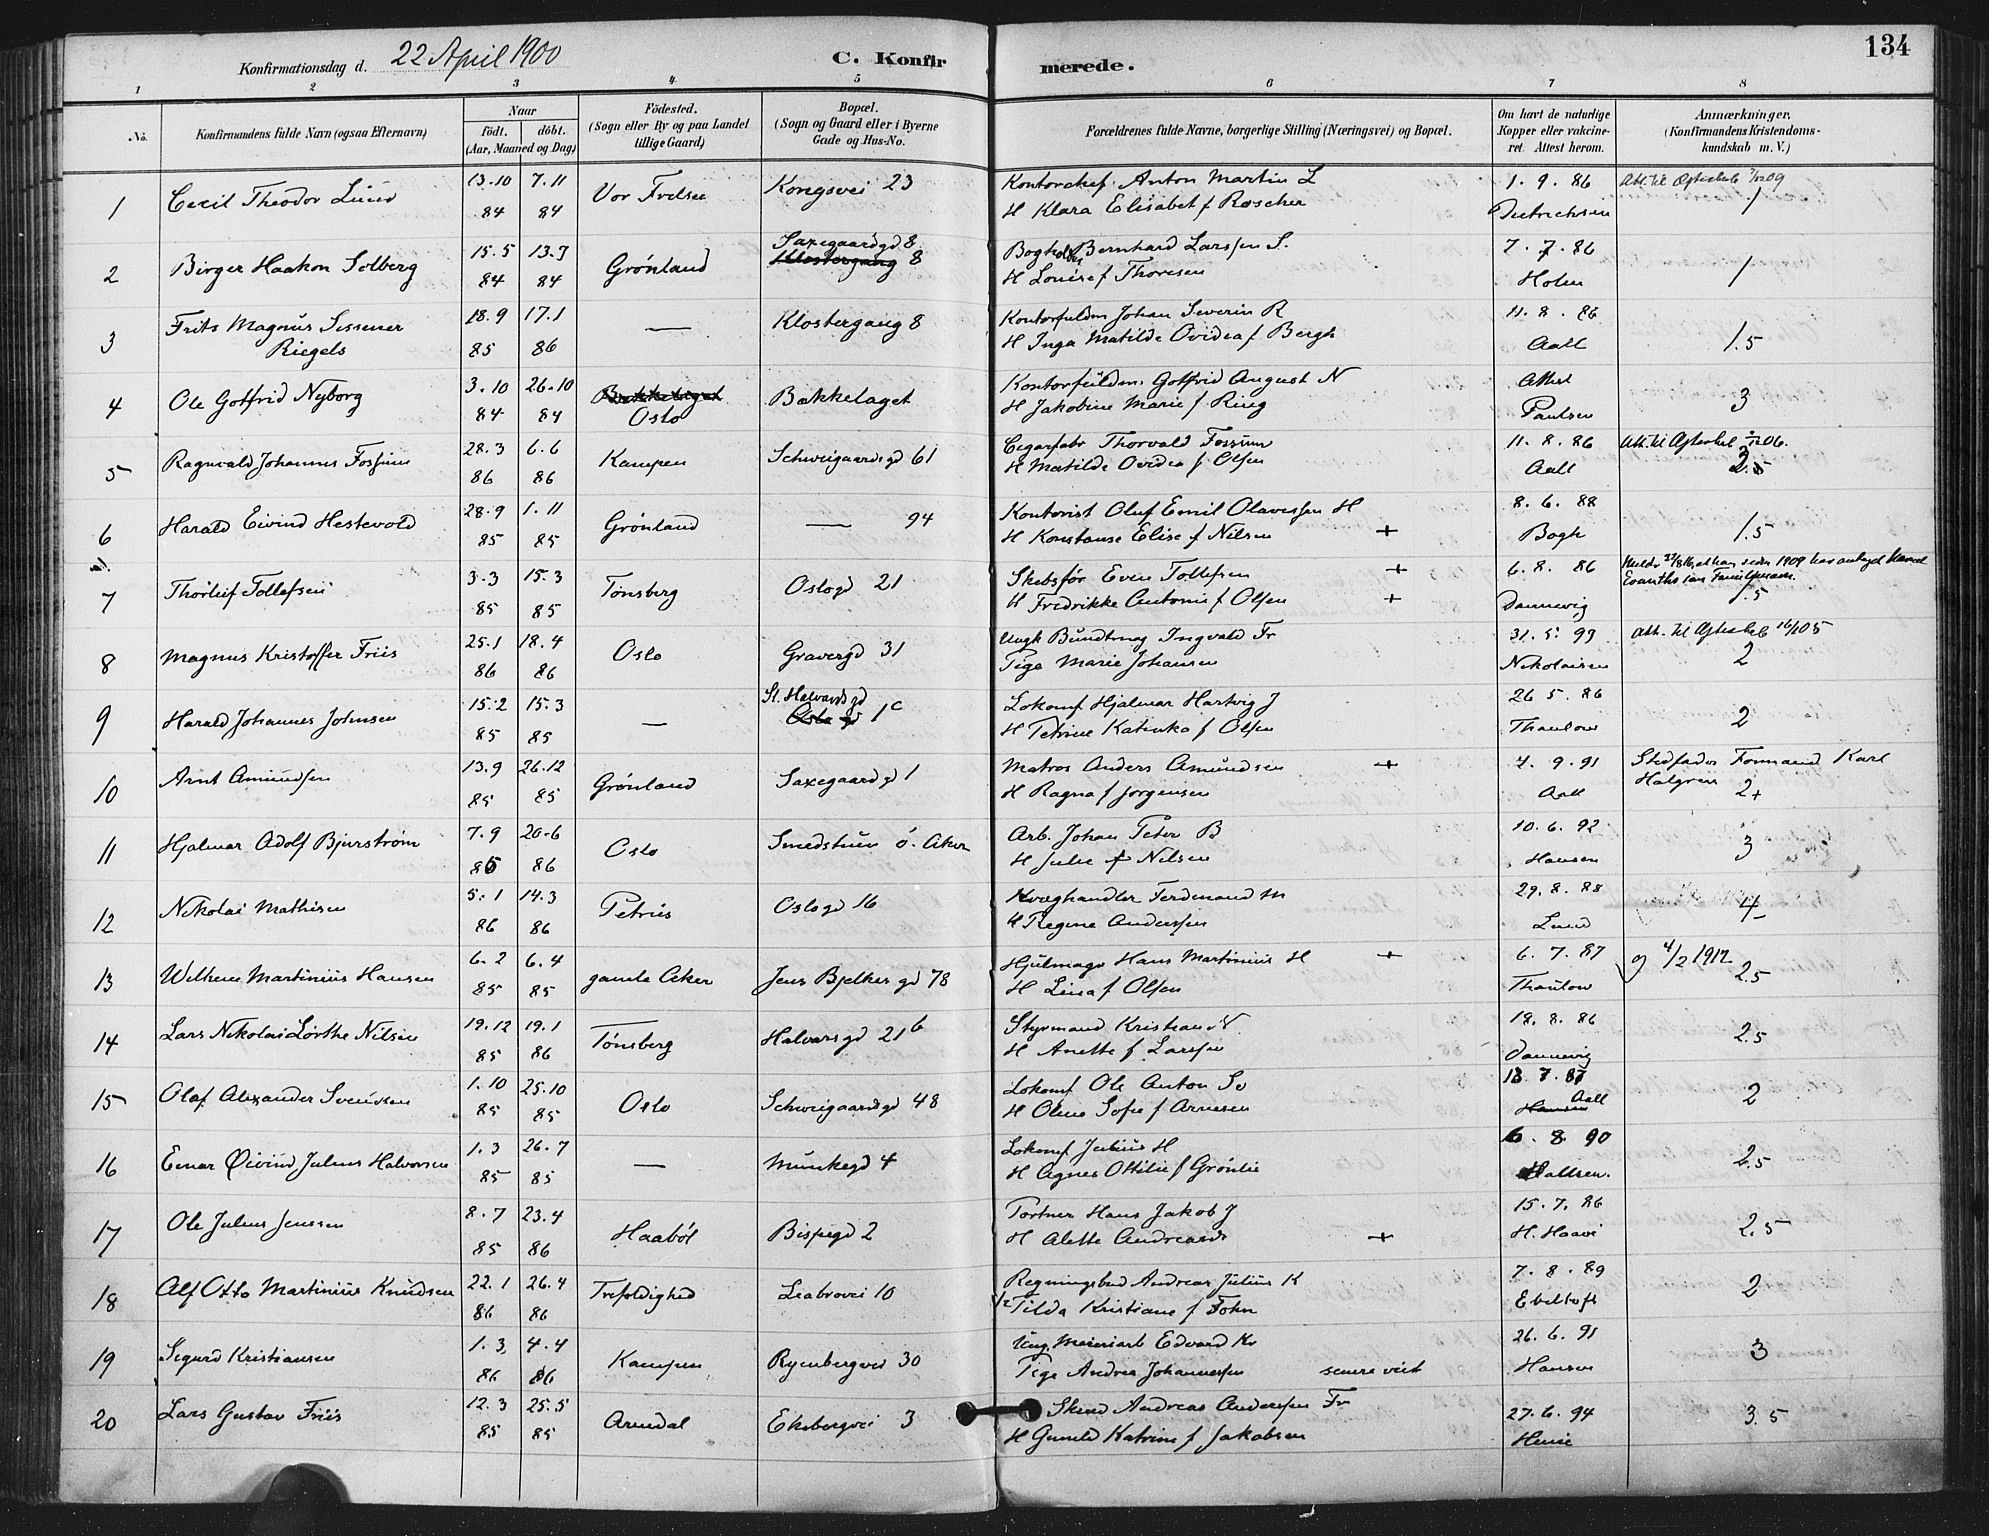 134
Konfirmationsdag d. 22 April 1900
C. Konfirmerede.
1 2 3 4 5 6 7 8
No.
Konfirmandens fulde Navn (ogsaa Efternavn)
Naar
födt. döbt.
(Aar, Maaned og Dag)
Födested.
(Sogn eller By og paa Landet
tillige Gaard)
Bopæl.
(Sogn og Gaard eller i Byerne
Gade og Hus-No.
Forældrenes fulde Navne, borgerlige Stilling (Næringsvei) og Bopæl.
Om havt de naturlige
Kopper eller vakcine-
ret. Attest herom.
Anmærkninger.
(Konfirmandens Kristendoms-
kundskab m. V.)
1 Cecil Theodor Lund 13.10 84 7.11 84 Vor Frelser Kongsvei 23
Kontorchef Anton Martin L
H Klara Elisabet f Roscher
1. 9. 86 Dietrichsen 1
2 Birger Haakon Solberg 15.5 84 13.7 84 Grönland Saxegaardgd 8
Klostergang 8
Bogholder Bernhard Larssen S.
H Louise f Thoresen
7. 7. 86 Holm 1
3 Frits Magnus Sissener
Riegels 18.9 85 17.1 86 — Klostergang 8
Kontorfuldm Johan Severin R
H Inga Matilde Ovidea f Bergh
11. 8. 86 Aall 1.5
4 Ole Gotfrid Nyborg 3.10 84 26.10 84 Bækkelaget
Oslo Bækkelaget
Kontorfuldm. Gotfrid August N
H Jakobine Marie f Ring
Attest Paulsen 3
5 Ragnvald Johannes Fossum 28.3 86 6.6 86 Kampen Schweigaardsgd 61
Cigarfabr Thorvald Fossum
H Matilde Ovidea f Olsen
11. 8. 86 Aall 2.5
6 Harald Eivind Hestevold 28.9 85 1.11 85 Grönland — 94
Kontorist Oluf Emil Olavessen H
H Konstanse Elise f Nilsen +
8. 6. 88 Bogh 1.5
7 Thorleif Tollefsen 3.3 85 15.3 85 Tonsberg Oslogd 21
Skibsför Even Tollefsen +
H Fredrikke Antonie f Olsen +
6. 8. 86 Dannevig
1.5
8 Magnus Kristoffer Friis 25.1 86 18.4 86 Oslo Gravergd 31
Ungk Bundtmag Ingvald Fr
Pige Marie Johansen
31. 5. 99 Nikolaisen 2
9 Harald Johannes Johnsen 15.2 85 15.3 85 — St. Halvardsgd
Oslo gd 1c
Lokomf Hjalmar Hartvig J
H Petrine Katinka f Olsen
26 5. 86 Thaulow 2
10 Arnt Amundsen 13.9 85 26.12 85 Grönland Saxegaardgd 1
Matros Anders Amundsen +
H Ragna f Jorgensen
4. 9. 91 Aall
Stedfader Formand Karl
Halgren 2+
11 Hjalmar Adolf Bjurström 7.9 85 20.6 86 Oslo Smedstuen ö. Aker
Arb. Johan Peter B
H Julie f Nilsen
10. 6. 92 Hansen 3
12 Nikolai Mathisen 5.1 86 14.3 86 Petrus Oslogd 16
Kvæghandler Ferdinand M
H Regine Andersen
29. 8. 88 Lund 4-
13 Wilhem Martinius Hansen 6.2 85 6.4 85 gamle Aker Jens Bjelkes gd 78
Hjulmager Hans Martinius H +
H Lina f Olsen
6. 7. 87 Thaulow
4/2 1912 2.5
14 Lars Nikolai Lorthe Nilsen 19.12 85 19.1 86 Tönsberg Halvarsgd 21b
Styrmand Kristian N
H Anette f Larsen
18. 8. 86 Dannevig 2.5
15 Olaf Alexander Svendsen 1.10 85 25.10 85 Oslo Schweigaardsgd 48
Lokomf Ole Anton Sv
H Oline Sofie f Arnesen
13. 7. 87 Hansen Aall 2
16 Einar Öivind Julius Halvorsen 1.3 85 26.7 85 — Munkegd 4
Lokomf Julius H
H Agnes Ottilie f Grönlie
6. 8. 90 2.5
17 Ole Julius Jensen 8.7 85 23.4 86 Haaböl Bispegd 2
Portner Hans Jakob J
H Alette Andreasdr +
15. 7. 86 H. Haavi 2.5
18 Alf Otto Martinius Knudsen 22.1 86 26.4 86 Trefoldighed Leabrovei 10
Regningsbud Andreas Julius K
H Tilda Kristiane f John
7. 8. 89 Ebeltoft 2
19 Sigurd Kristiansen 1.3 86 4.4 86 Kampen Ryenbergvei 30
Ung. Meieriarb Edvard Kr
Pige Andrea Johannessen senere viet
26. 6. 91 Hansen 3
20 Lars Gustav Friis 12.3 85 25.5 85 Arendal Ekebergvei 3
Andreas Andersen Fr
H Gunild Katrine f Jakobsen
27. 6. 94 3.5